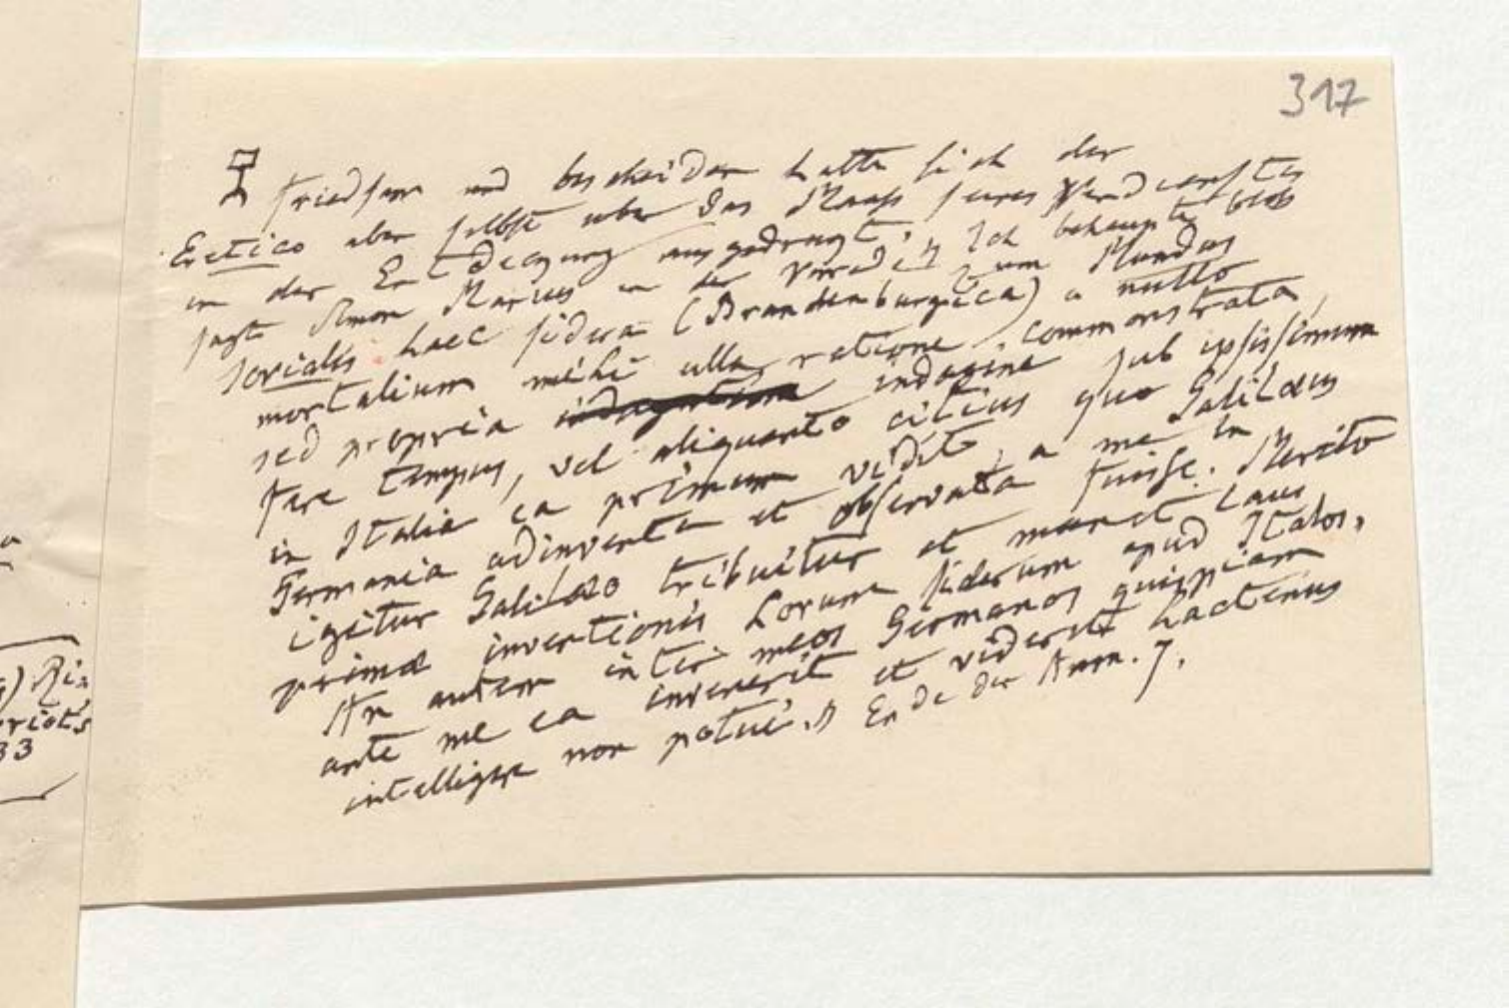 317
friedsam und bescheiden hatte sich der
Eretico aber selbst über das Maass seines Verdienstes
in der Entdeckung ausgedrückt. „Ich behaupte blos
sagt Simon Marius in der Vorrede zum Mundus
Jovialis haec sidera (Brandenburgica) a nullo
mortalium mihi ulla ratione commonstrata,
sed propria indagatione indagine sub ipsissimum
fere tempus, vel aliquanto citius quo Galilæus
in Italia ea primum vidit, a me in
Germania adinventa et observata fuisse. Merito
igitur Galilæo tribuitur et manet laus
primæ inventionis horum siderum apud Italos.
An autem inter meos Germanos quispiam
ante me ea invenerit et viderit hactenus
intelligere non potui.“ Ende der Anm. 7.
33